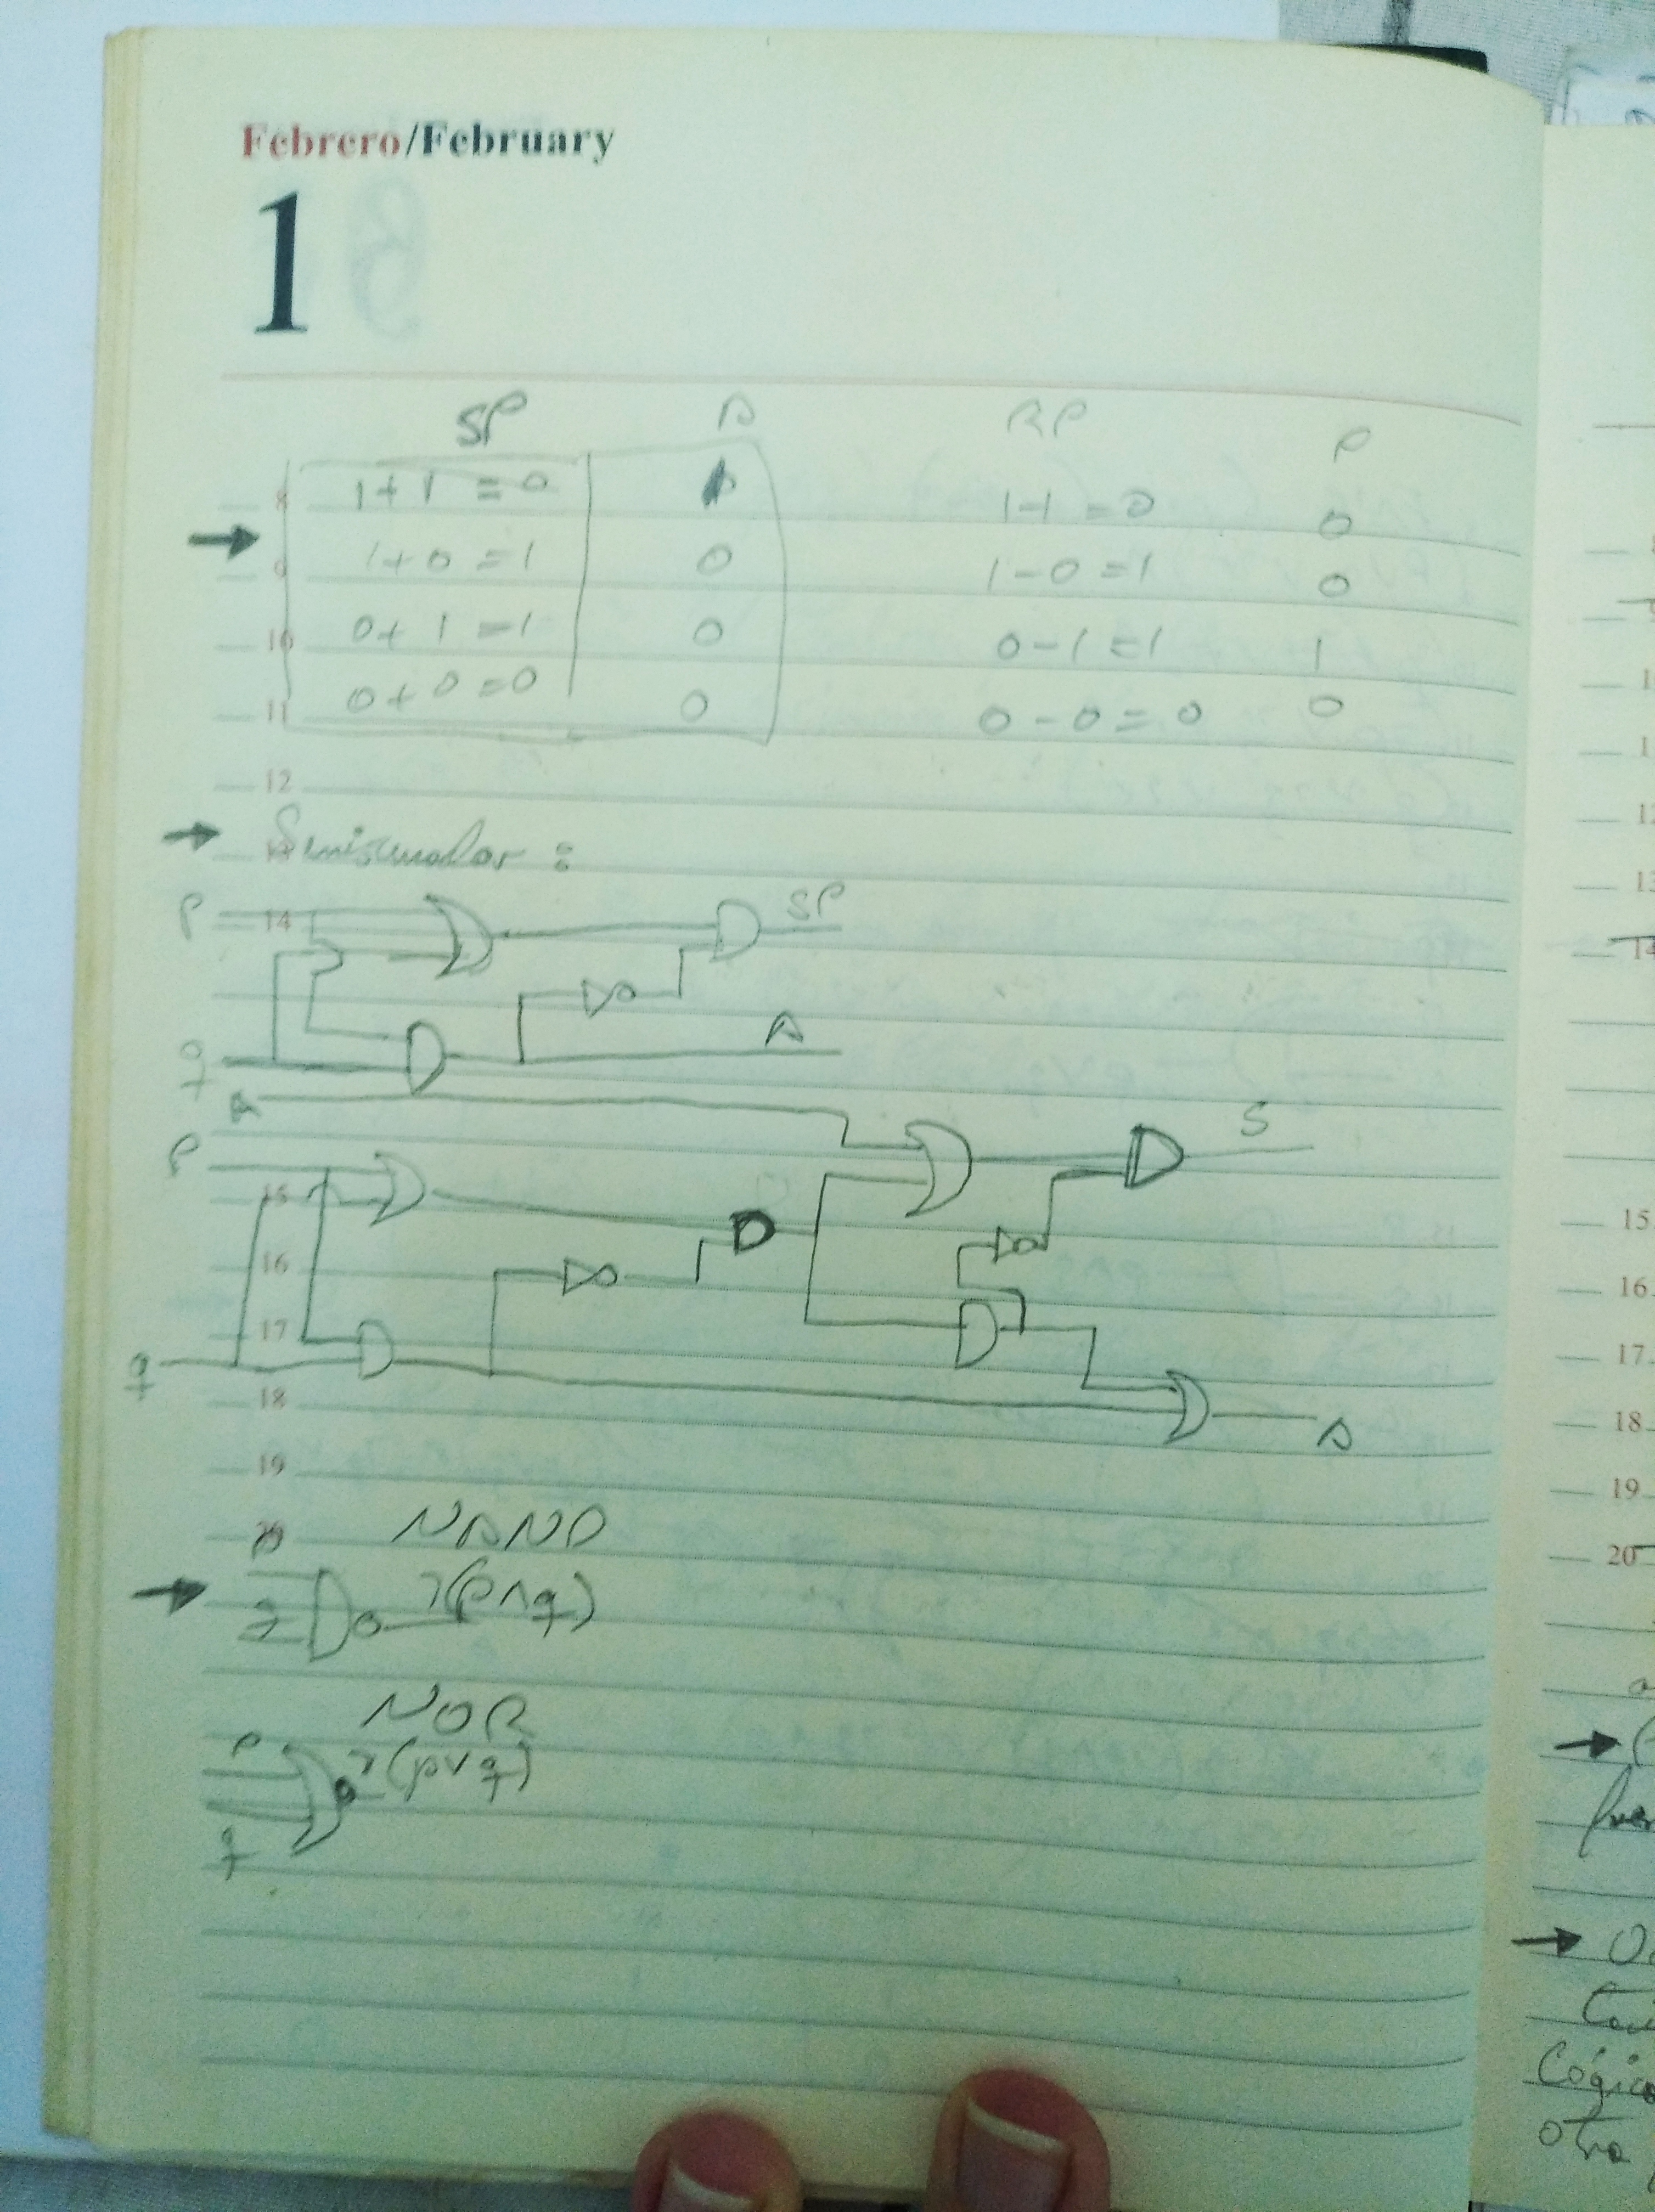 Febrero/February
1
SP A RP P
8 1+1 = 0 1 1-1 = 0 0
9 1+0 = 1 0 1-0 = 1 0
10 0+1 = 1 0 0-1 = 1 1
11 0+0 = 0 0 0-0 = 0 0
12
Semisumador :
P 14 SP
q A
A S
P
15
16
17
q
18 A
19
20 NAND
q ¬(p∧q)
NOR
P ¬(p∨q)
q
15
16
17
18
19
20